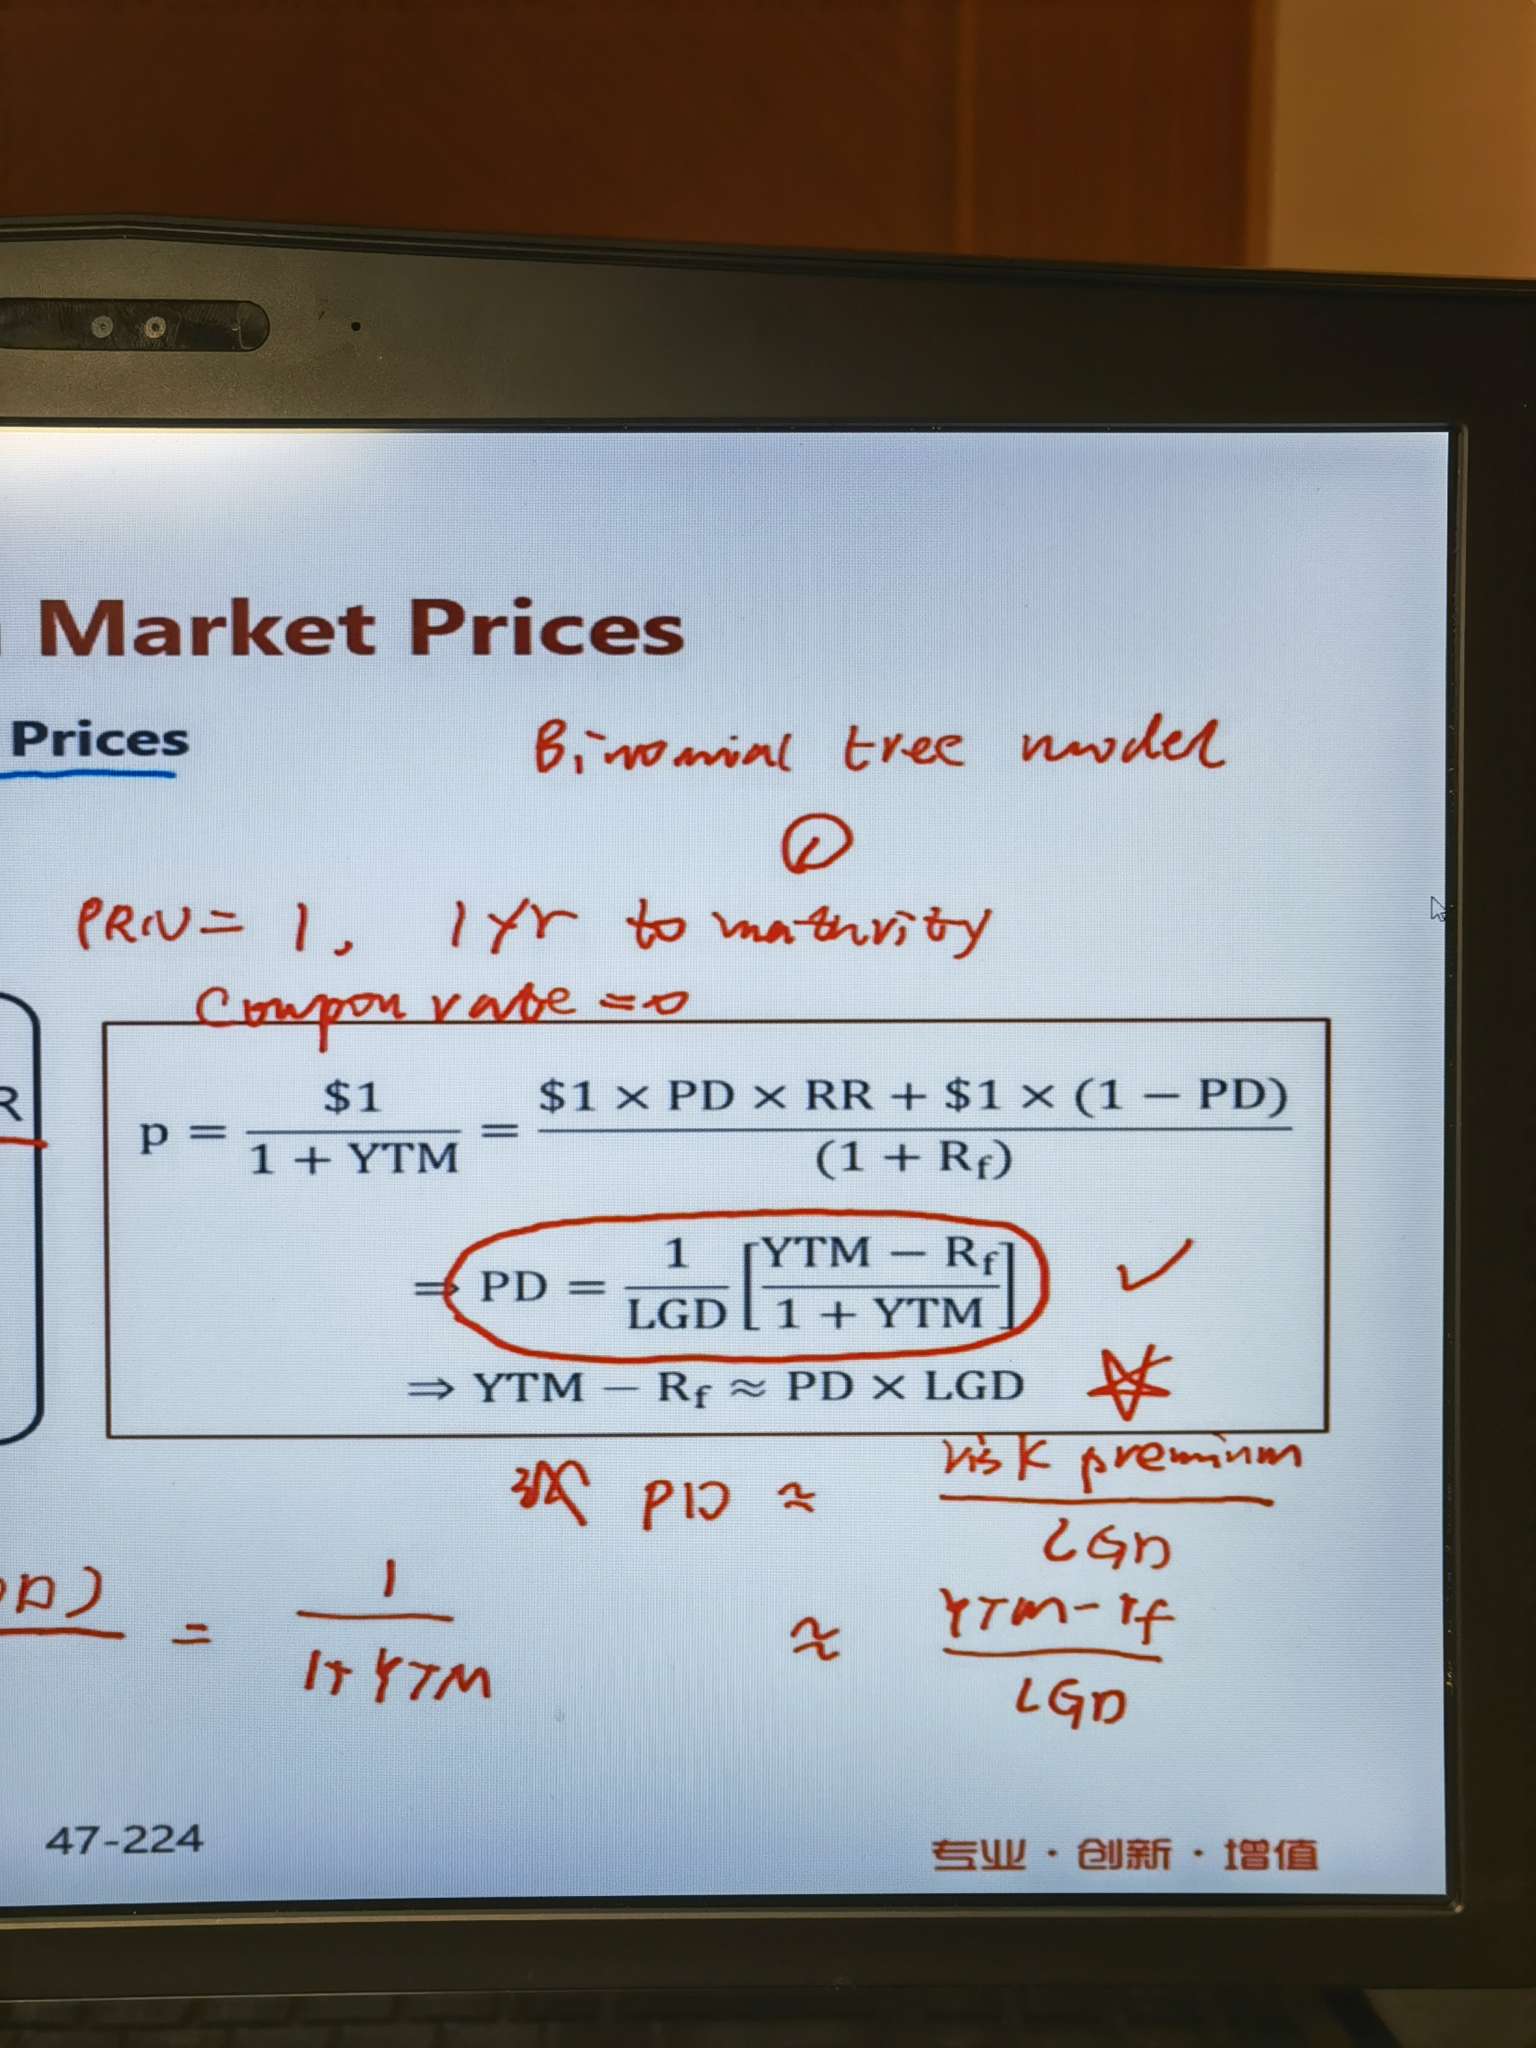 Market Prices
Prices
Binomial tree model
①
PRIN = 1, 1 yr to maturity
Coupon rate = 0
R
p = $1 / (1 + YTM) = ($1 × PD × RR + $1 × (1 − PD)) / (1 + Rf)
⇒ PD = 1/LGD [(YTM − Rf) / (1 + YTM)] ✓
⇒ YTM − Rf ≈ PD × LGD ☆
PD ≈ risk premium / LGD
D) = 1 / (1 + YTM) ≈ (YTM - rf) / LGD
47-224
专业·创新·增值